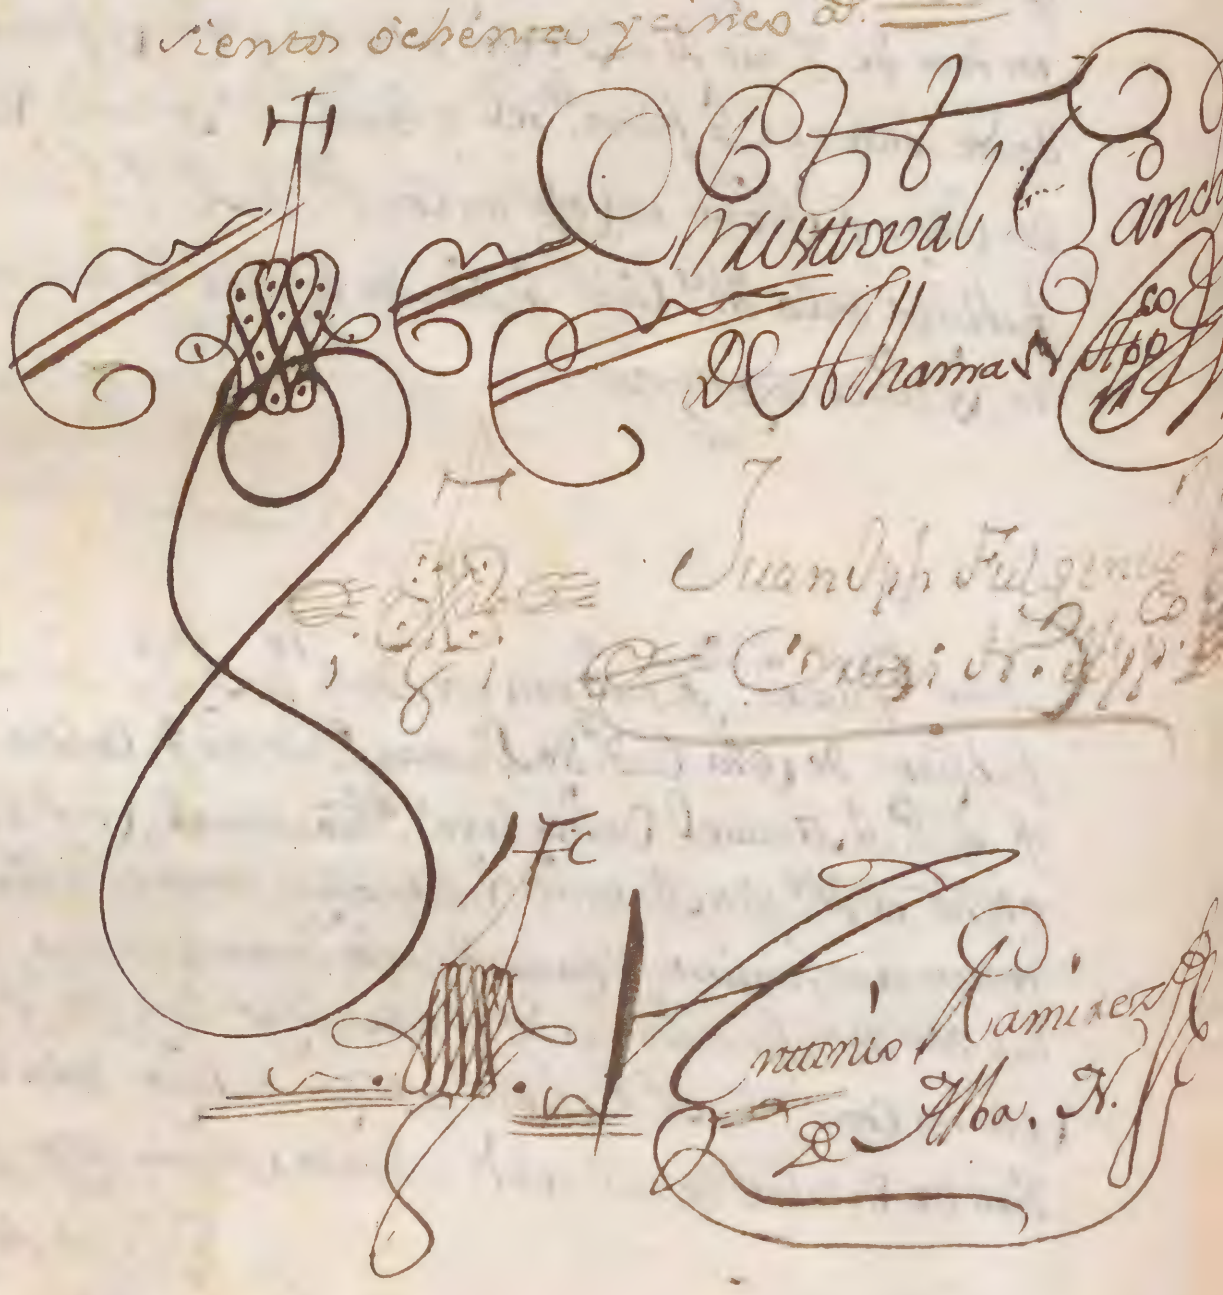 sientos ochenta y cinco as.
Christtoval Sanch
De Alhama N appco
Juan Jph Fulgencio
N. Appco
Anttonio Ramirez
De Alba. N.